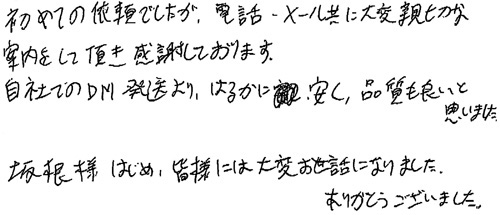 初めての依頼でしたが、電話・メール共に大変親切な
案内をして頂き感謝しております。
自社でのDM発送より、はるかに安く、品質も良いと
思いました
坂根様はじめ、皆様には大変お世話になりました。
ありがとうございました。